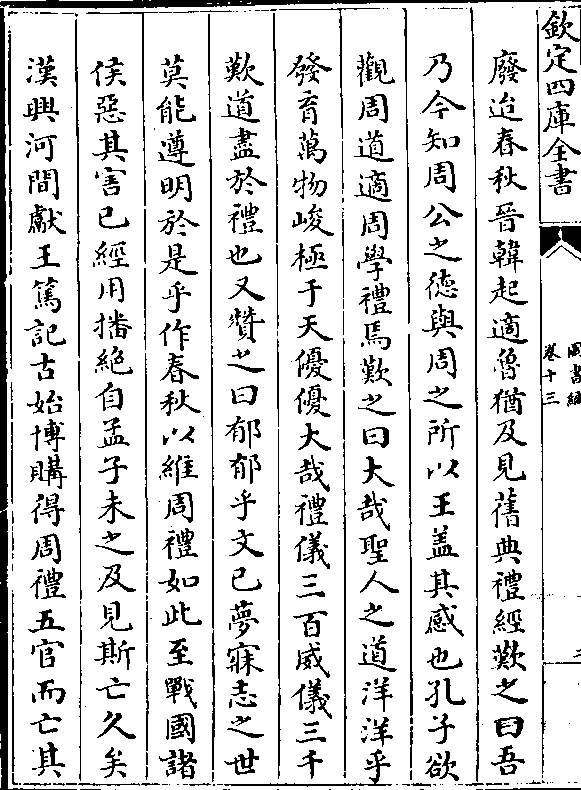 欽定四庫全書
卷十三
廢迨春秋晉韓起適魯猶及見舊典禮經歎之曰吾
乃今知周公之德與周之所以王盖其感也孔子欲
觀周道適周學禮焉歎之曰大哉聖人之道洋洋乎
發育萬物峻極于天優優大哉禮儀三百威儀三千
歎道盡於禮也又贊之曰郁郁乎文已夢寐志之世
莫能遵明於是乎作春秋以維周禮如此至戰國諸
侯惡其害已經用播絶自孟子未之及見斯亡久矣
漢興河間獻王篤記古始博購得周禮五官而亡其